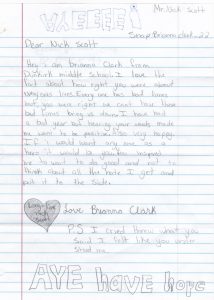 Mr. Nick Scott
YAYEEEE!
Snap: Brianna clark-22
Dear Nick Scott
Hey i am Brianna Clark from
Dunkirk middle School. I love the
fact about how right you were about
everyones lives. Every one has bad times
but you were right we cant have those
bad times bring us down. I have had
a bad year but hearing your words made
me want to be positive. Also very happy.
If i would want any one as a
hero it would be you. You inspired
me to want to do good and not to
think about all the hate I get and
put it to the side.
Love Brianna Clark
P.S I cryed Hearing what you
said I felt like you under
stood me.
AYE have hope